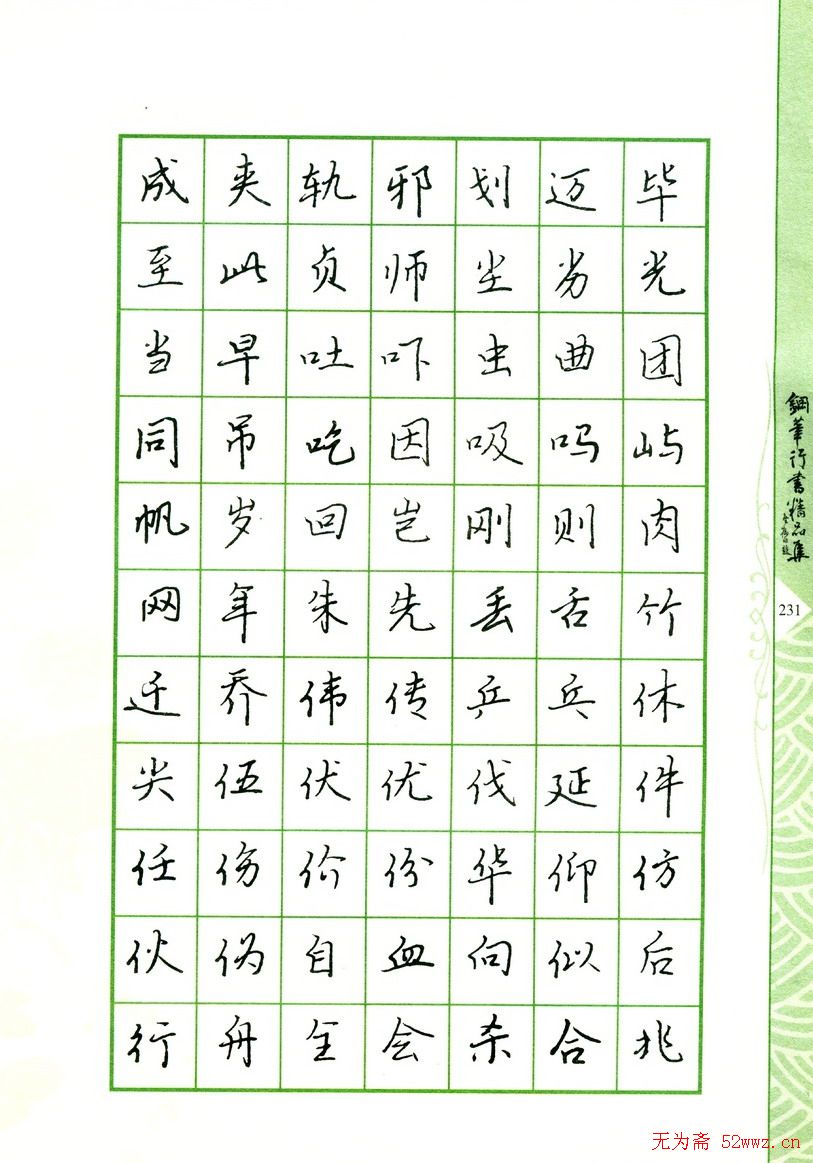 成夹轨邪划迈毕
至此贞师尘劣光
当早吐吓虫曲团
同吊吃因吸吗屿
帆岁回岂刚则肉
网年朱先丢舌竹
迁乔伟传乒乓休
尖伍伏优伐延件
任伤价份华仰仿
伙伪自血向似后
行舟全会杀合兆
钢笔行书精品集
231
无为斋 52wwz.cn